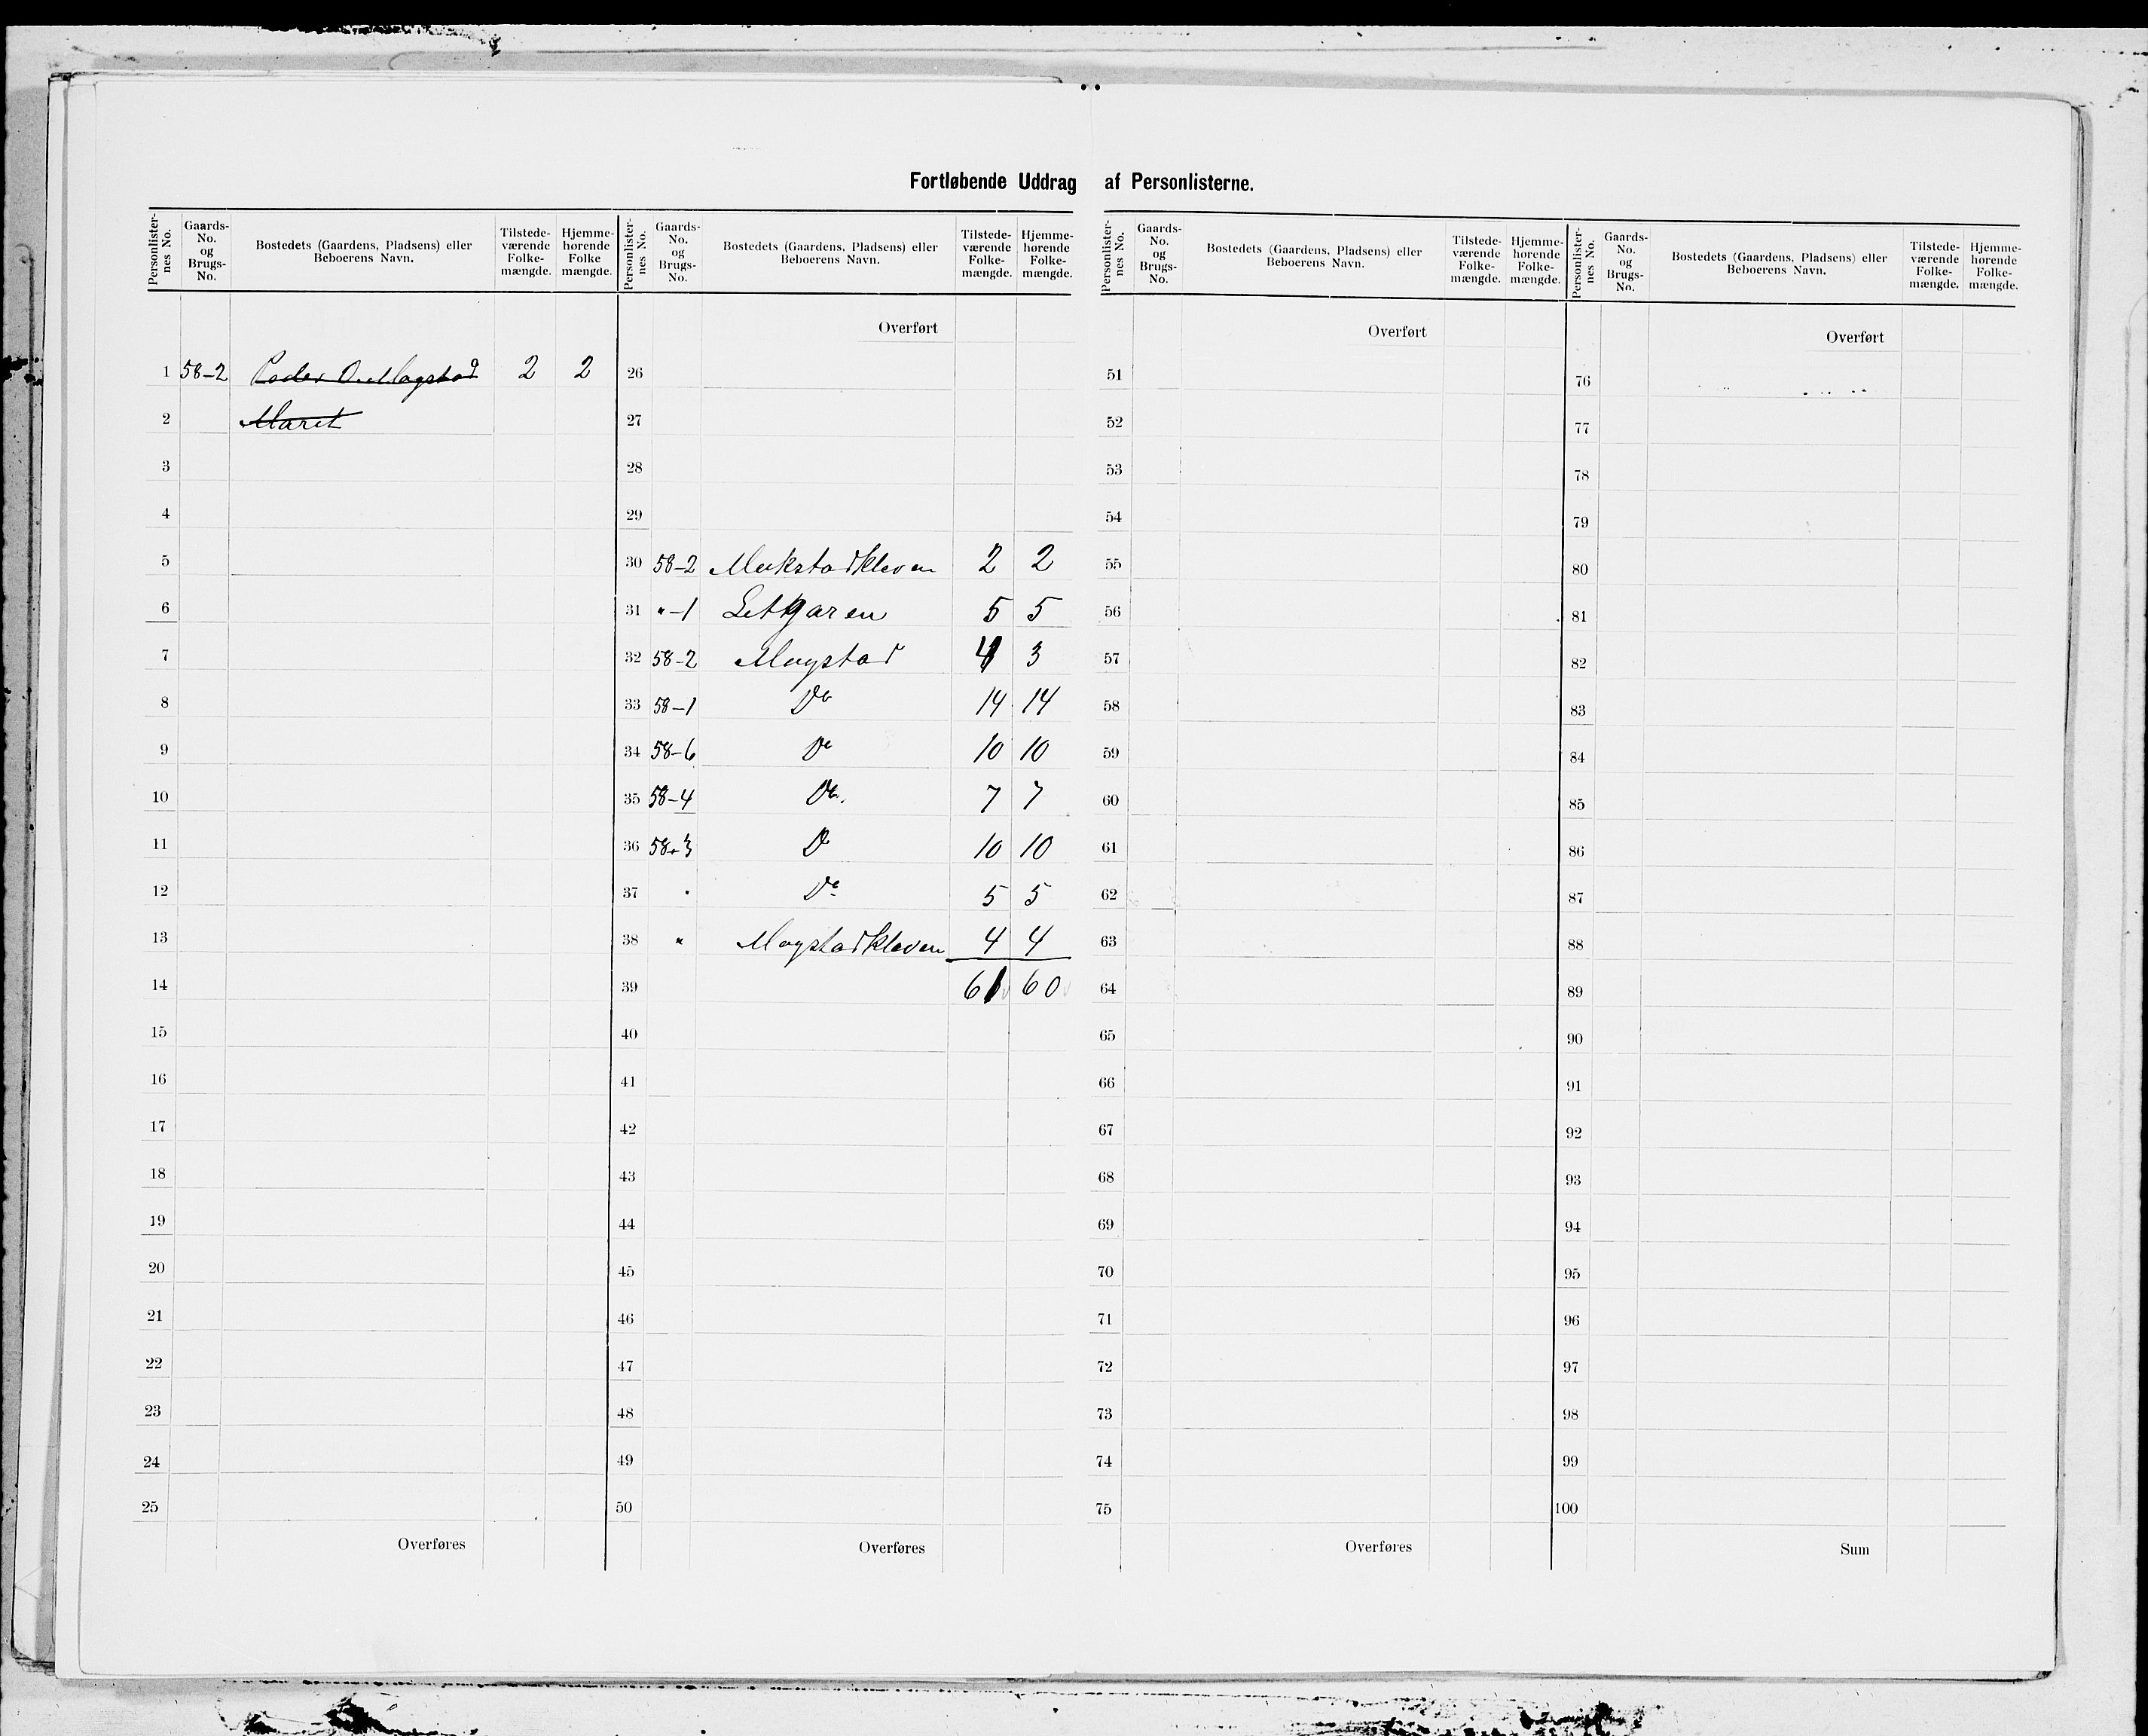 Fortløbende Uddrag af Personlisterne.
Personlister-nes No. | Gaards-No. og Brugs-No. | Bostedets (Gaardens, Pladsens) eller Beboerens Navn. | Tilstede-værende Folke-mængde. | Hjemme-hørende Folke mængde. | Personlister-nes No. | Gaards-No. og Brugs-No. | Bostedets (Gaardens, Pladsens) eller Beboerens Navn. | Tilstede-værende Folke-mængde. | Hjemme-hørende Folke-mængde. | Personlister-nes No. | Gaards-No. og Brugs-No. | Bostedets (Gaardens, Pladsens) eller Beboerens Navn. | Tilstede-værende Folke-mængde. | Hjemme-hørende Folke-mængde. | Personlister-nes No. | Gaards-No. og Brugs-No. | Bostedets (Gaardens, Pladsens) eller Beboerens Navn. | Tilstede-værende Folke-mængde. | Hjemme-hørende Folke-mængde.
Overført Overført Overført
1 58-2 Magstad 2 2 26 51 76
2 Marit 27 52 77
3 28 53 78
4 29 54 79
5 30 58-2 Mokstadkleven 2 2 55 80
6 31 " -1 5 5 56 81
7 32 58-2 Mogstad 4 3 57 82
8 33 58-1 Do 14 14 58 83
9 34 58-6 Do 10 10 59 84
10 35 58-4 Do. 7 7 60 85
11 36 58-3 Do 10 10 61 86
12 37 " Do 5 5 62 87
13 38 " Mogstadkleven 4 4 63 88
14 39 61 60 64 89
15 40 65 90
16 41 66 91
17 42 67 92
18 43 68 93
19 44 69 94
20 45 70 95
21 46 71 96
22 47 72 97
23 48 73 98
24 49 74 99
25 50 75 100
Overføres Overføres Overføres Sum